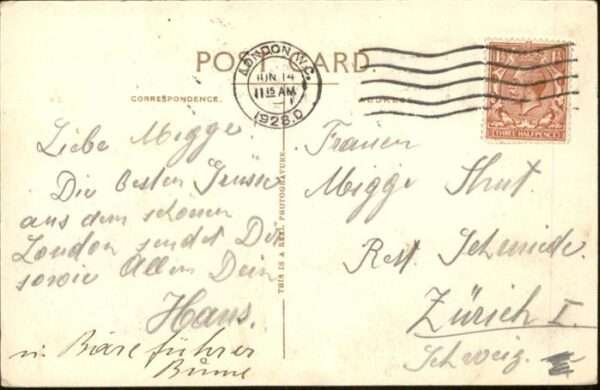 POST CARD.
LONDON. W.C.
JUN 14
11 15 AM
1928. D
THREE HALFPENCE
CORRESPONDENCE.
ADDRESS
THIS IS A REAL PHOTOGRAVURE
Liebe Migge.
Die besten Grüsse
aus dem schönen
London sendet Dir
sowie Allen Dein
Hans.
Bäreführer
Frauen
Migge
Rest. Schmiede.
Zürich I.
Schweiz.